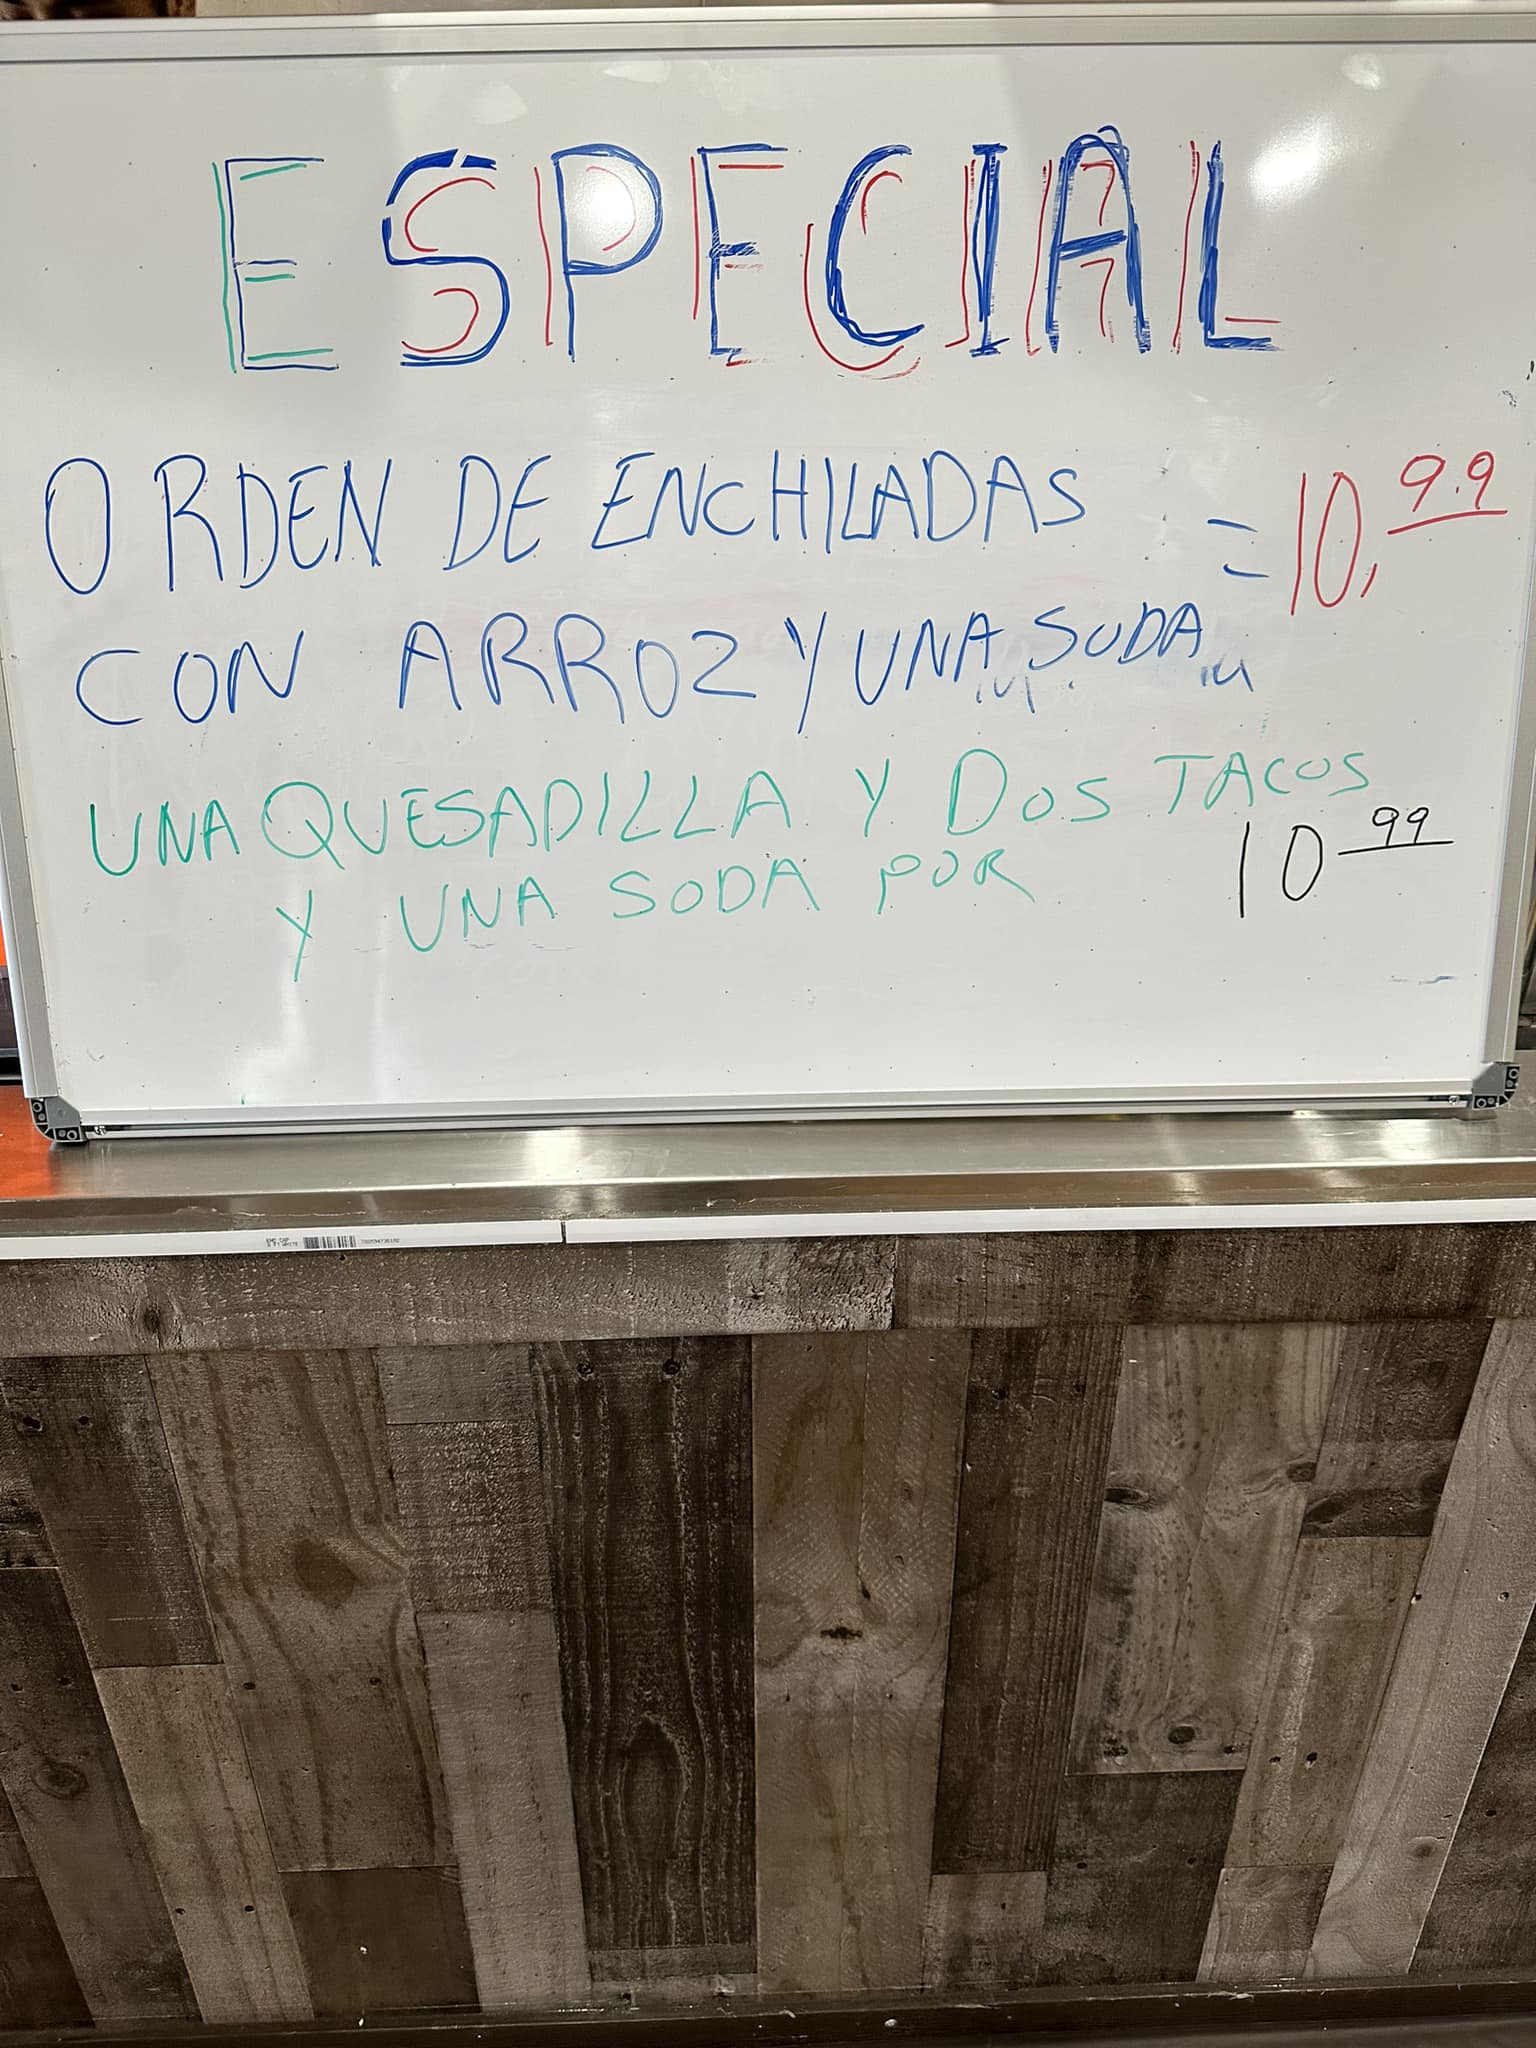 ESPECIAL
ORDEN DE ENCHILADAS = 10,99
CON ARROZ Y UNA SODA
UNA QUESADILLA Y DOS TACOS
Y UNA SODA POR 10 99